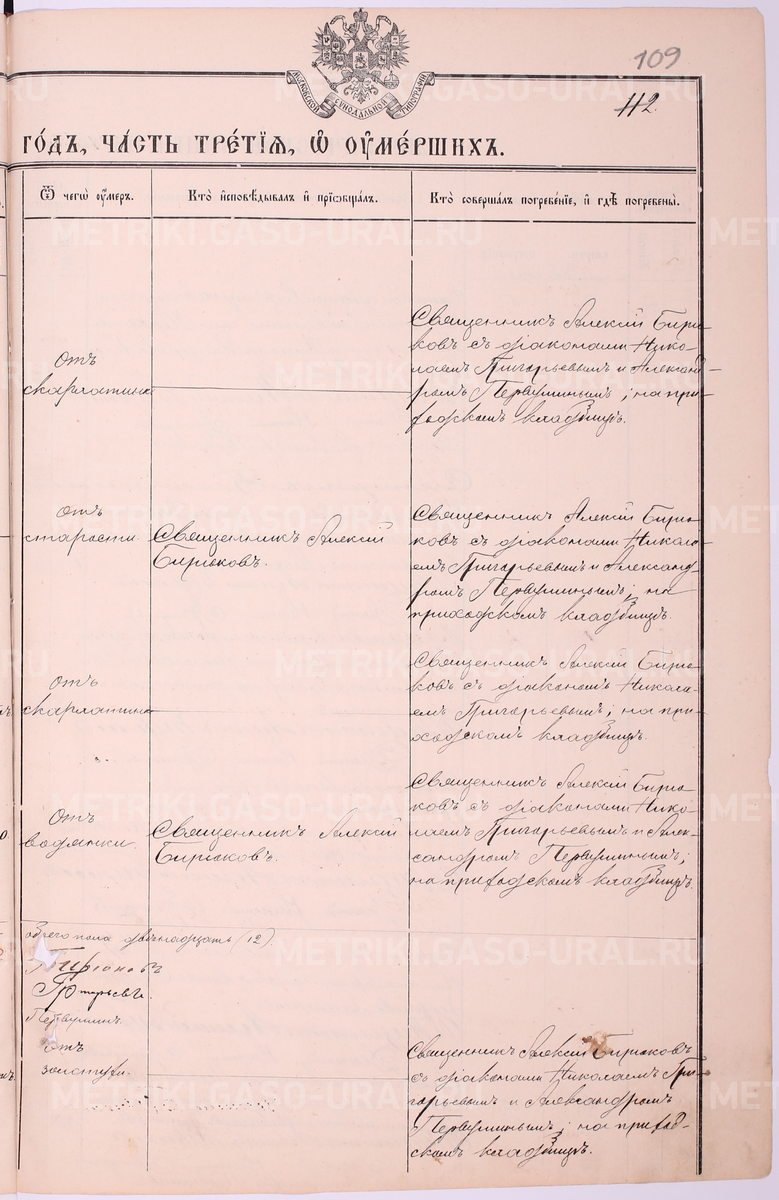 109
112
МОСКОВСКОЙ СѴНОДАЛЬНОЙ ТИПОГРАФІИ
го́дъ, ча́сть тре́тїѧ, ѡ҆ ᲂу҆ме́ршихъ.
Ѿ чегѡ̀ ᲂу҆́мер.
Кто̀ и҆сповѣ́дывалъ и҆ прїѡбща́лъ.
Кто̀ соверша́лъ погребе́нїе, и҆ гдѣ̀ погребены̀.
Отъ
скарлатины
Священникъ Алексій Бирю-
ковъ съ діаконами Нико-
лаемъ Григорьевымъ и Александ-
ромъ Первушинымъ; на при-
ходскомъ кладбищѣ.
Отъ
старости.
Священникъ Алексій
Бирюковъ.
Священникъ Алексій Бирю-
ковъ съ діаконами Никола-
емъ Григорьевымъ и Александ-
ромъ Первушинымъ; на
приходскомъ кладбищѣ.
Отъ
скарлатины
Священникъ Алексій Бирю-
ковъ съ діакономъ Никола-
емъ Григорьевымъ; на при-
ходскомъ кладбищѣ.
Отъ
водянки.
Священникъ Алексій
Бирюковъ.
Священникъ Алексій Бирю-
ковъ съ діаконами Нико-
лаемъ Григорьевымъ и Алек-
сандромъ Первушинымъ;
на приходскомъ кладбищѣ.
обоего пола двѣнадцать (12).
Бирюковъ
Григорьевъ.
Первушинъ.
Отъ
золотухи.
Священникъ Алексій Бирюковъ
съ діаконами Николаемъ Гри-
горьевымъ и Александромъ
Первушинымъ; на приход-
скомъ кладбищѣ.
METRIKI.GASO-URAL.RU